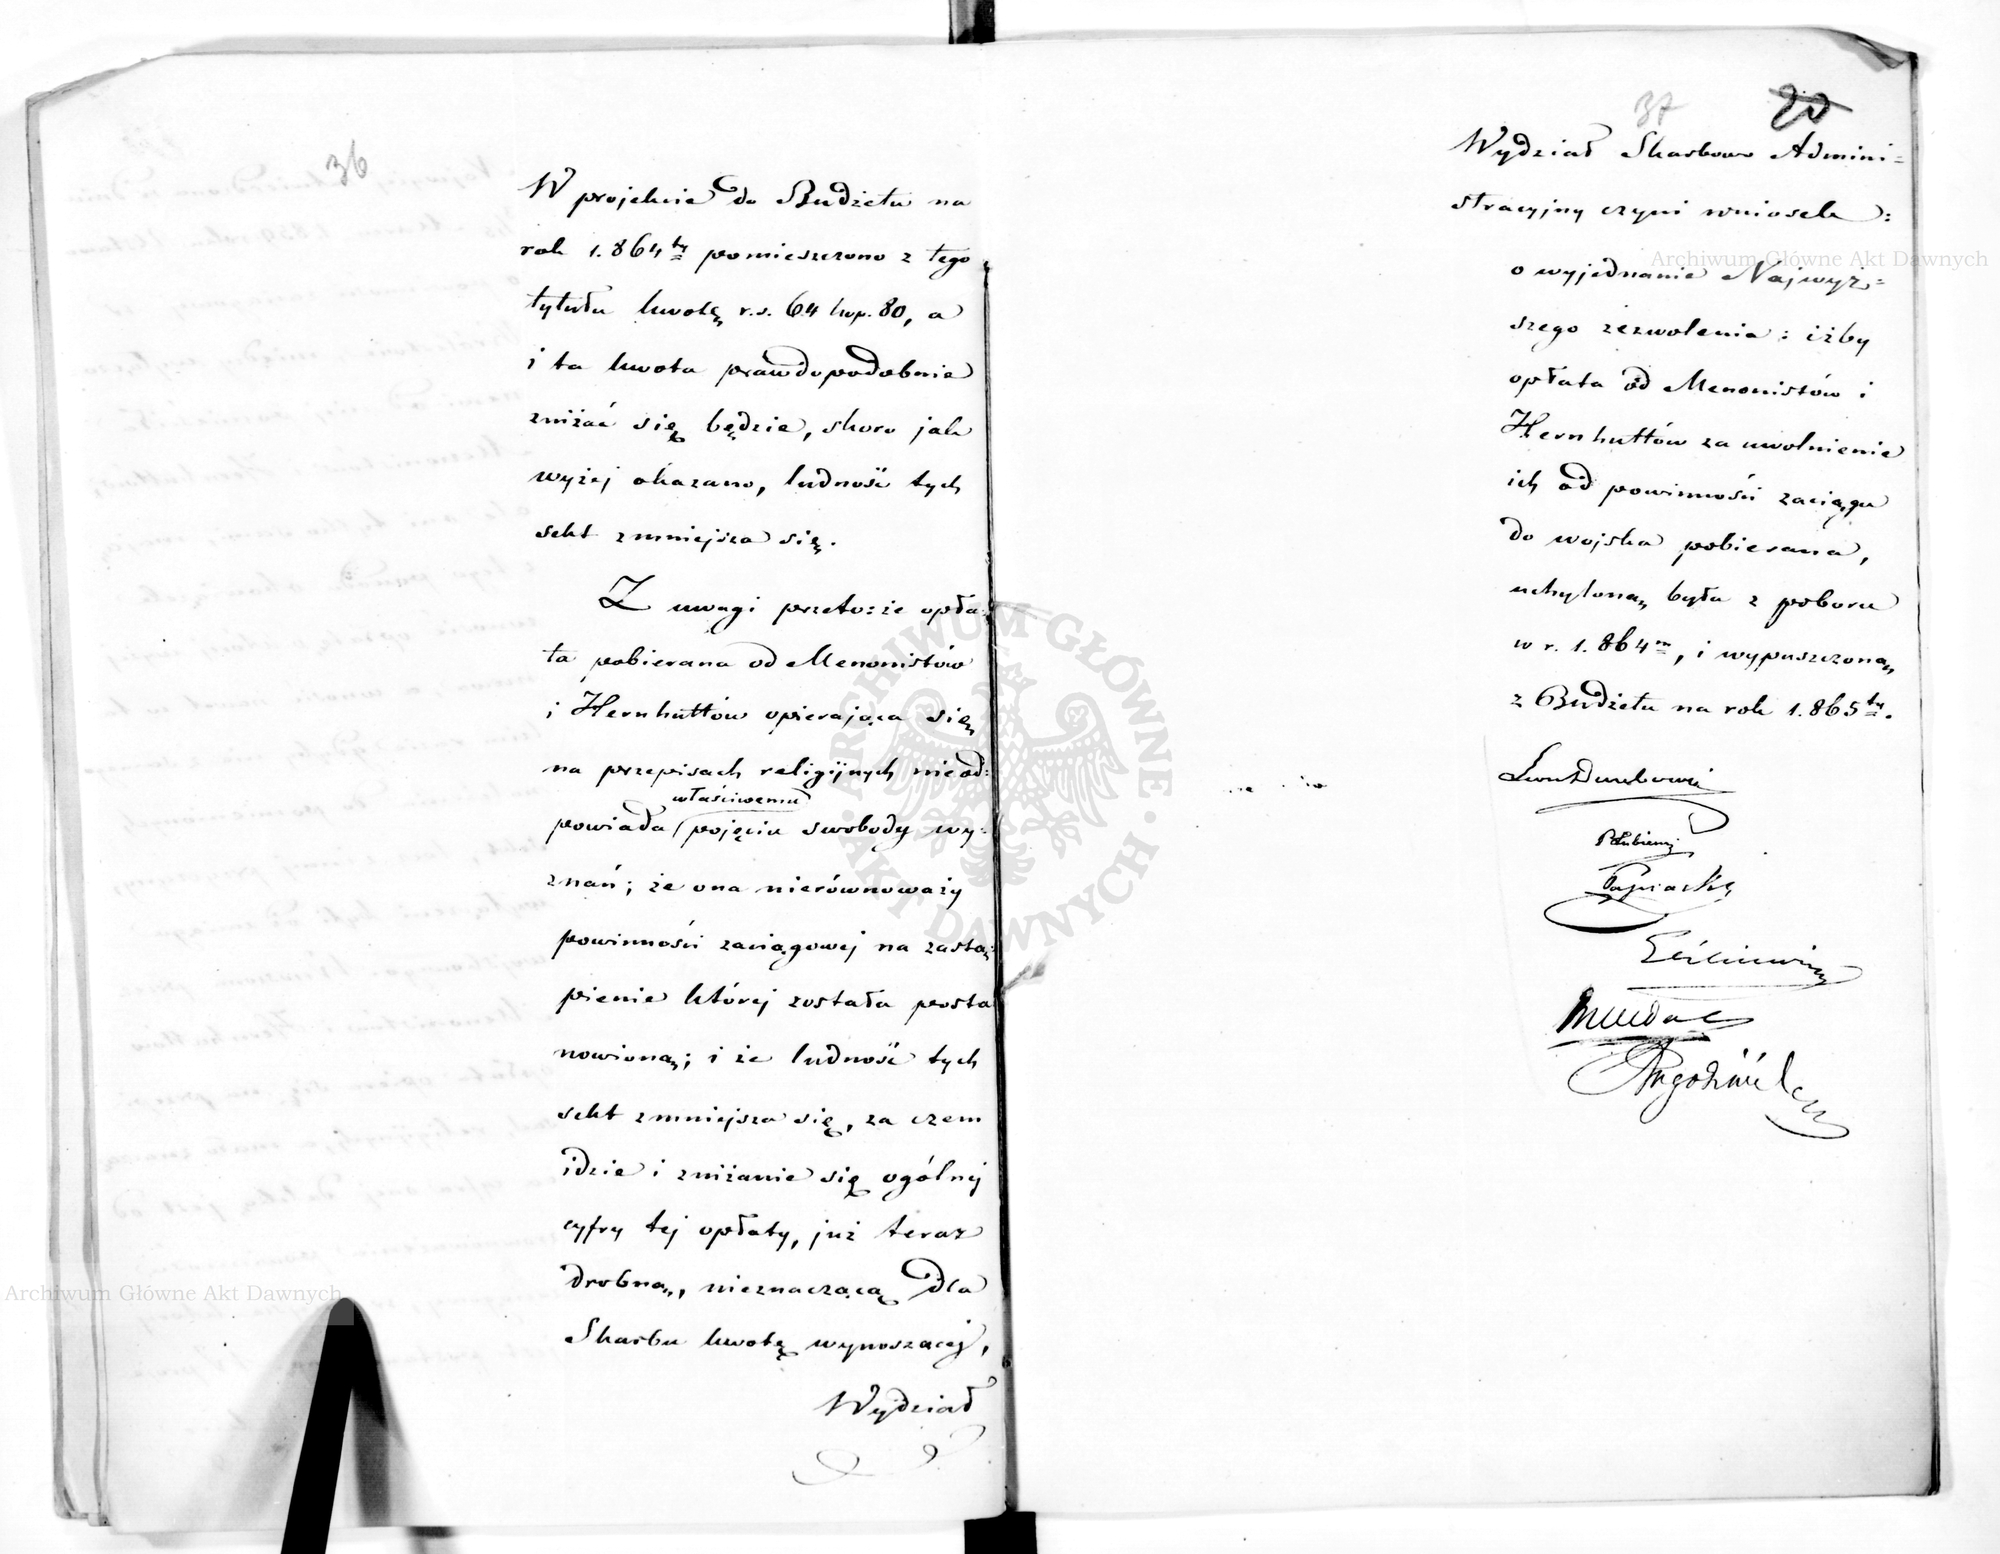 36
W projekcie do Budżetu na
rok 1.864ty pomieszczono z tego
tytułu kwotę r.s. 64 kop. 80, a
i ta kwota prawdopodobnie
zniżać się będzie, skoro jak
wyżej okazano, ludność tych
sekt zmniejsza się.
Z uwagi przeto: że opła=
ta pobierana od Menonistów
i Hernhuttów opierająca się
na przepisach religijnych nieod=
właściwemu
powiada pojęciu swobody wy=
znań; że ona nierównoważy
powinności zaciągowej na zastą=
pienie której została posta
nowioną; i że ludność tych
sekt zmniejsza się, za czem
idzie i zniżanie się ogólnej
cyfry tej opłaty, już teraz
drobną, nieznaczącą dla
Skarbu kwotę wynoszącej,
Wydział
37
20
Wydział Skarbowo Admini=
stracyjny czyni wniosek:
o wyjednanie Najwyż=
szego zezwolenia: iżby
opłata od Menonistów i
Hernhuttów za uwolnienie
ich od powinności zaciągu
do wojska pobierana,
uchyloną była z poboru
w r. 1.864m, i wypuszczoną
z Budżetu na rok 1.865ty.
Archiwum Główne Akt Dawnych
Archiwum Główne Akt Dawnych
ARCHIWUM GŁÓWNE
AKT DAWNYCH